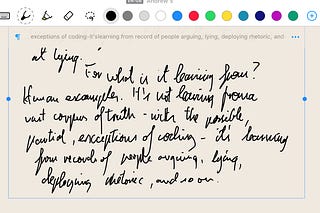 Andrew's
exceptions of coding-it'slearning from record of people arguing, lying, deploying rhetoric, and
at lying."
For what is it learning from?
Human examples. It's not learning from a
vast corpus of truth - with the possible,
partial, exceptions of coding - it's learning
from records of people arguing, lying,
deploying rhetoric, and so on.